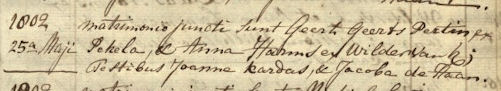 1802 matrimonio juncti sunt Geert Geerts Pertin ex
25a Maji Pekela, & Anna Harms ex Wildervank;
Testibus Joanne Kardas, & Jacoba de Haan.